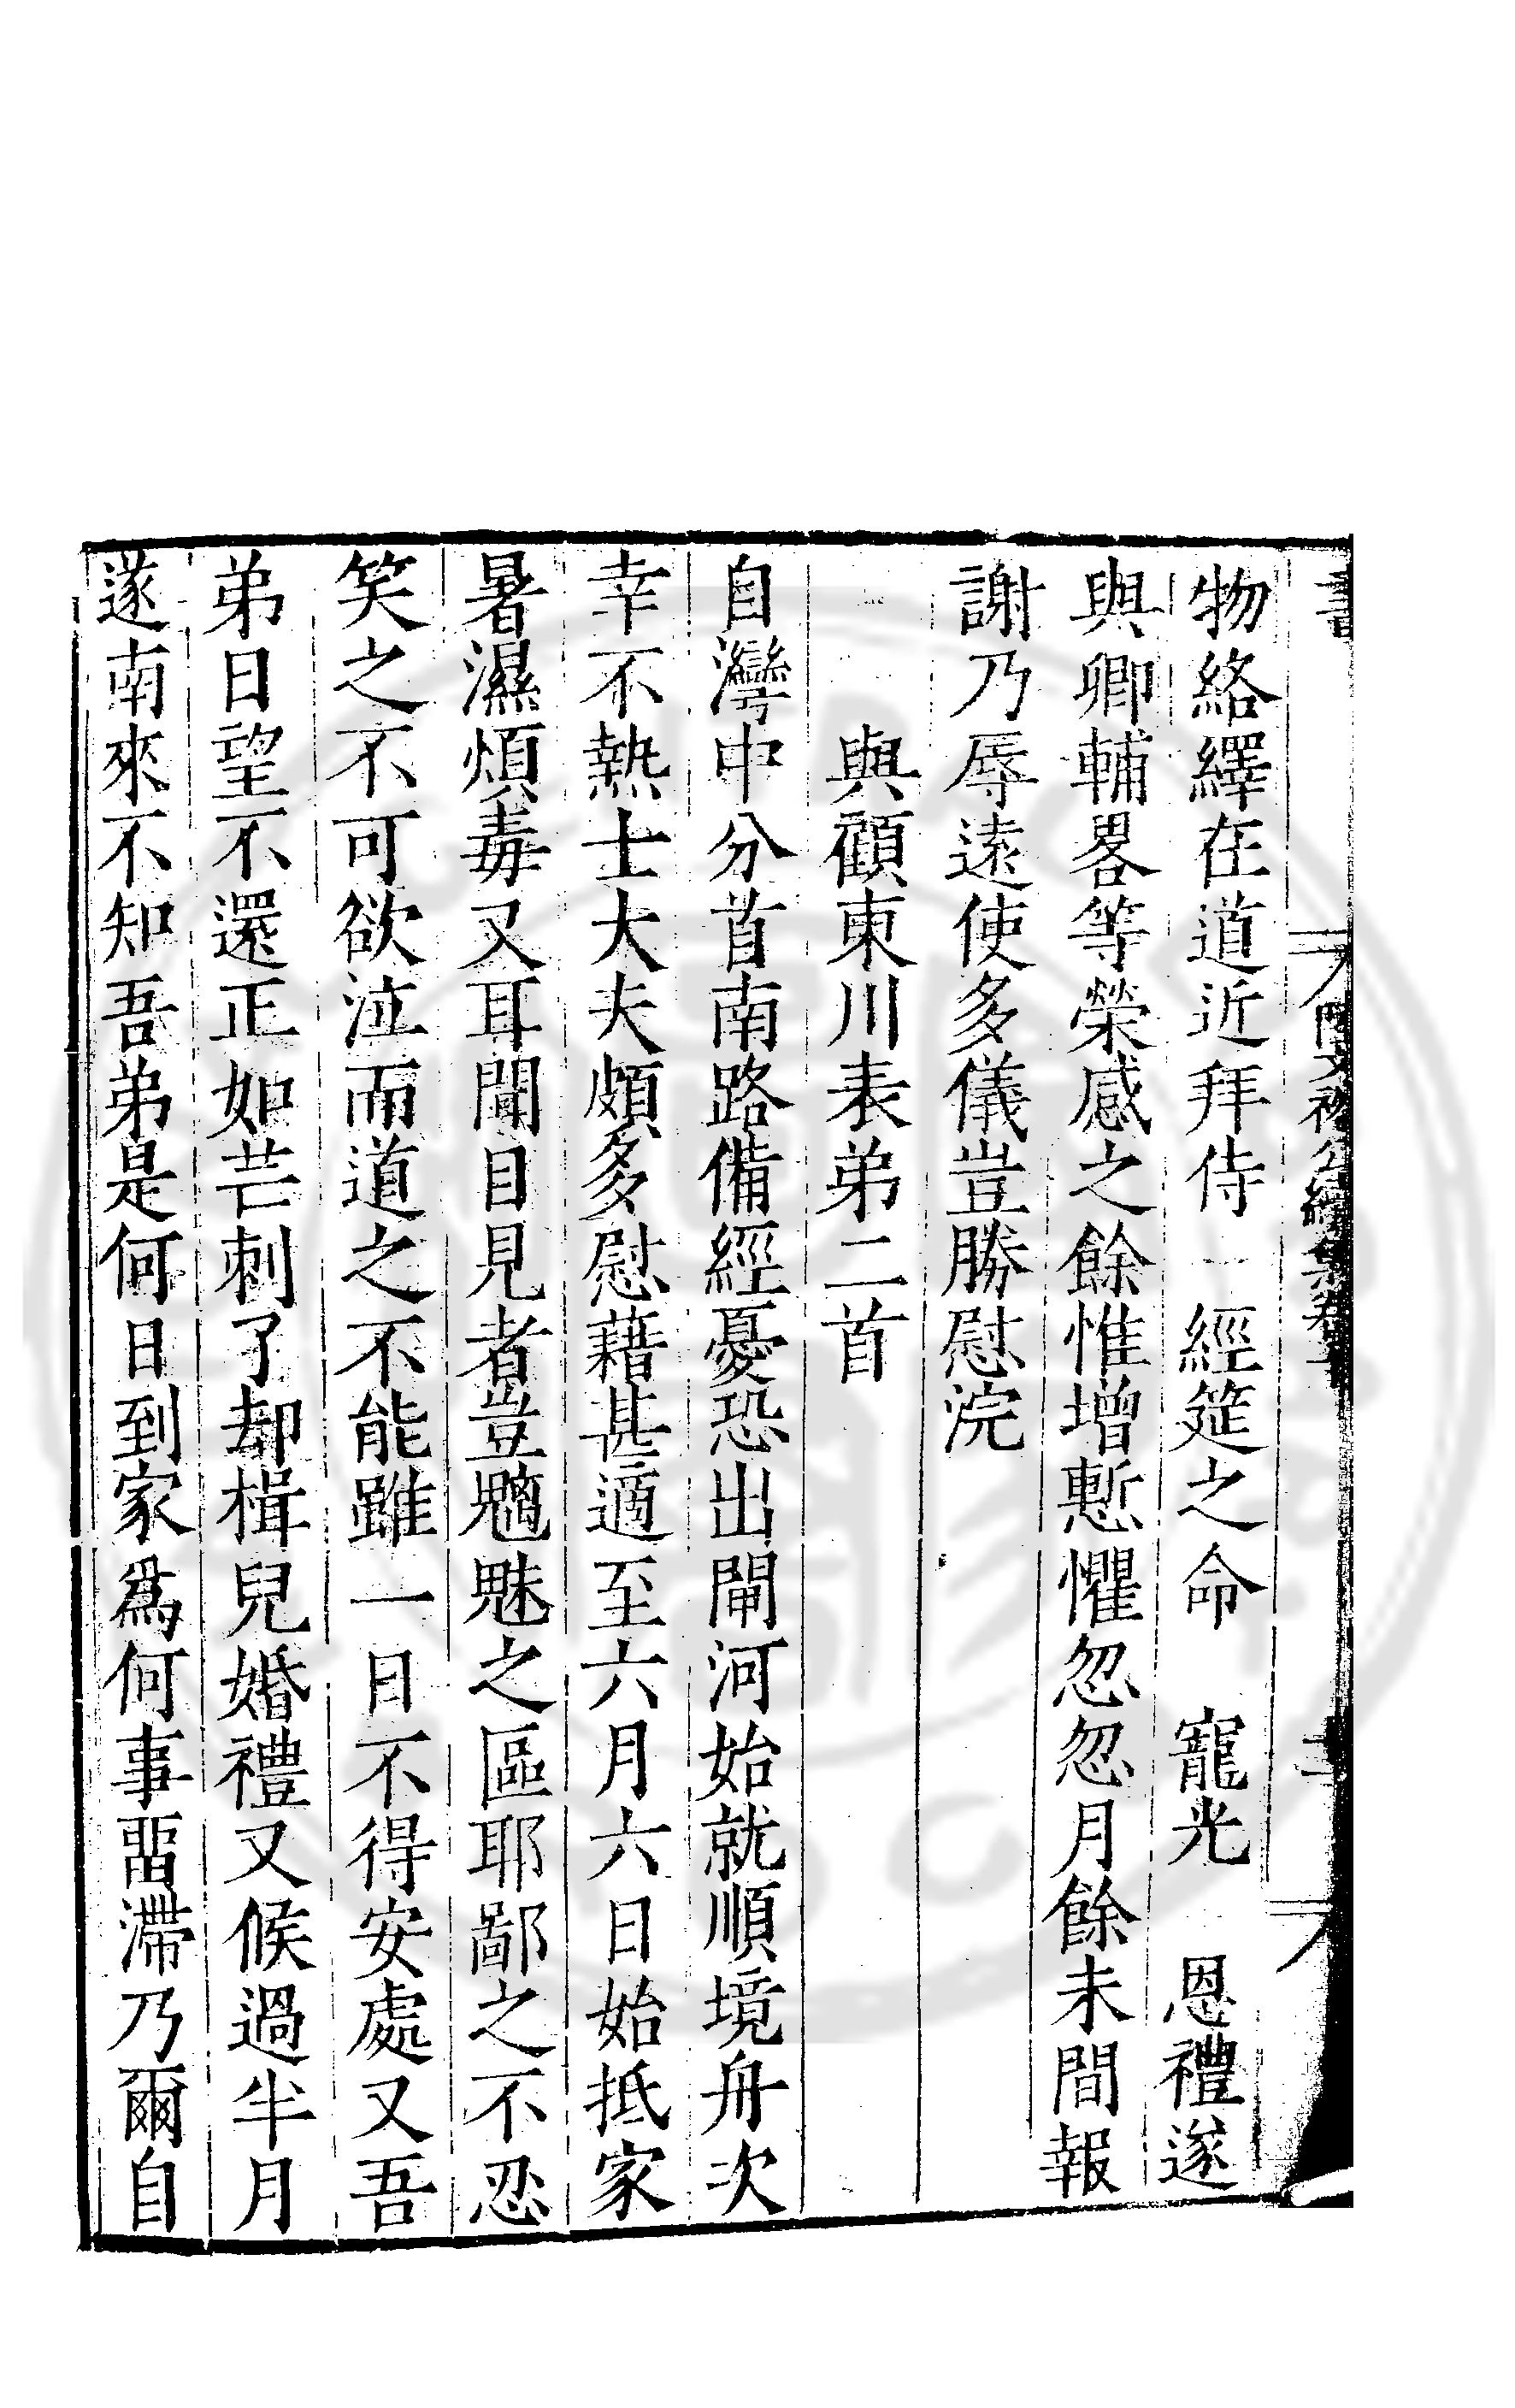 物絡繹在道近拜侍　經筵之命　寵光　恩禮遂
與卿輔畧等榮感之餘惟增慙懼忽忽月餘未間報
謝乃辱遠使多儀豈勝慰浣
與顧東川表弟二首
自灣中分首南路備經憂恐出閘河始就順境舟次
幸不熱士大夫頗多慰藉甚適至六月六日始抵家
暑濕煩毒又耳聞目見者豈魑魅之區耶鄙之不忍
笑之不可欲泣而道之不能雖一日不得安處又吾
弟日望不還正如芒刺了却楫兒婚禮又候過半月
遂南來不知吾弟是何日到家爲何事畱滯乃爾自